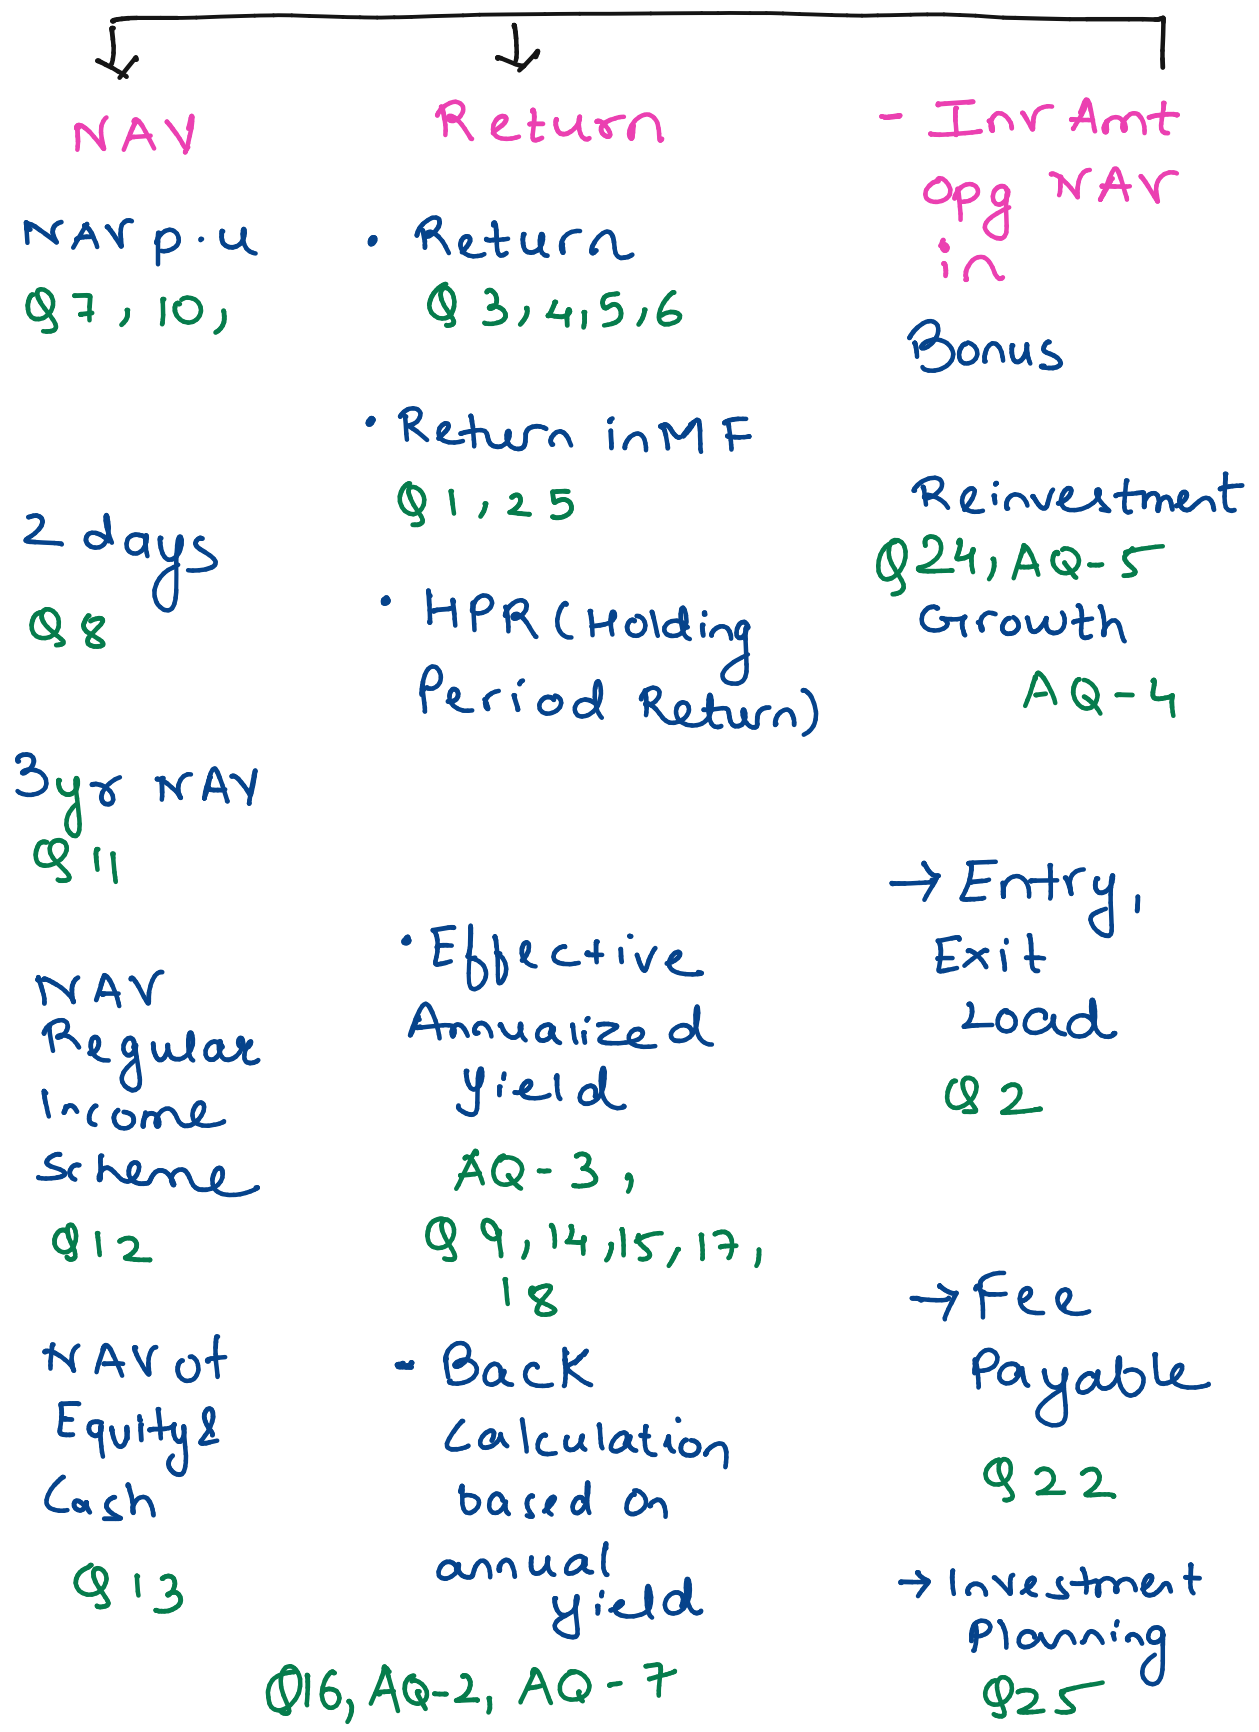 NAV
NAV p.u
Q7, 10,
2 days
Q8
3yr NAV
Q11
NAV
Regular
Income
Scheme
Q12
NAV of
Equity &
Cash
Q13
Return
• Return
Q 3,4,5,6
• Return in MF
Q1, 25
• HPR (Holding
Period Return)
• Effective
Annualized
yield
AQ-3,
Q 9, 14, 15, 17,
18
- Back
Calculation
based on
annual
yield
Q16, AQ-2, AQ-7
- Inv Amt
opg NAV
in
Bonus
Reinvestment
Q24, AQ-5
Growth
AQ-4
→ Entry,
Exit
Load
Q2
→ Fee
Payable
Q22
→ Investment
Planning
Q25